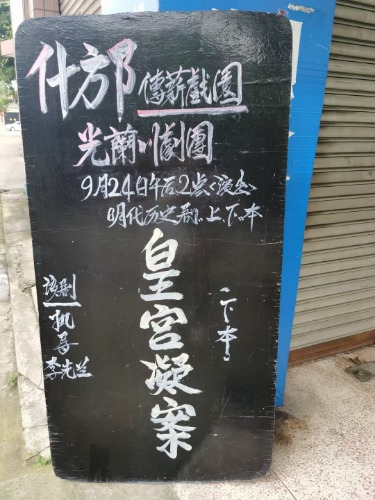 什邡傳薪戲園
光蘭川劇團
9月24日午后2点<演出>
明代历史剧“上、下”本
皇宮凝案
<下本>
該劇
执导
李先兰